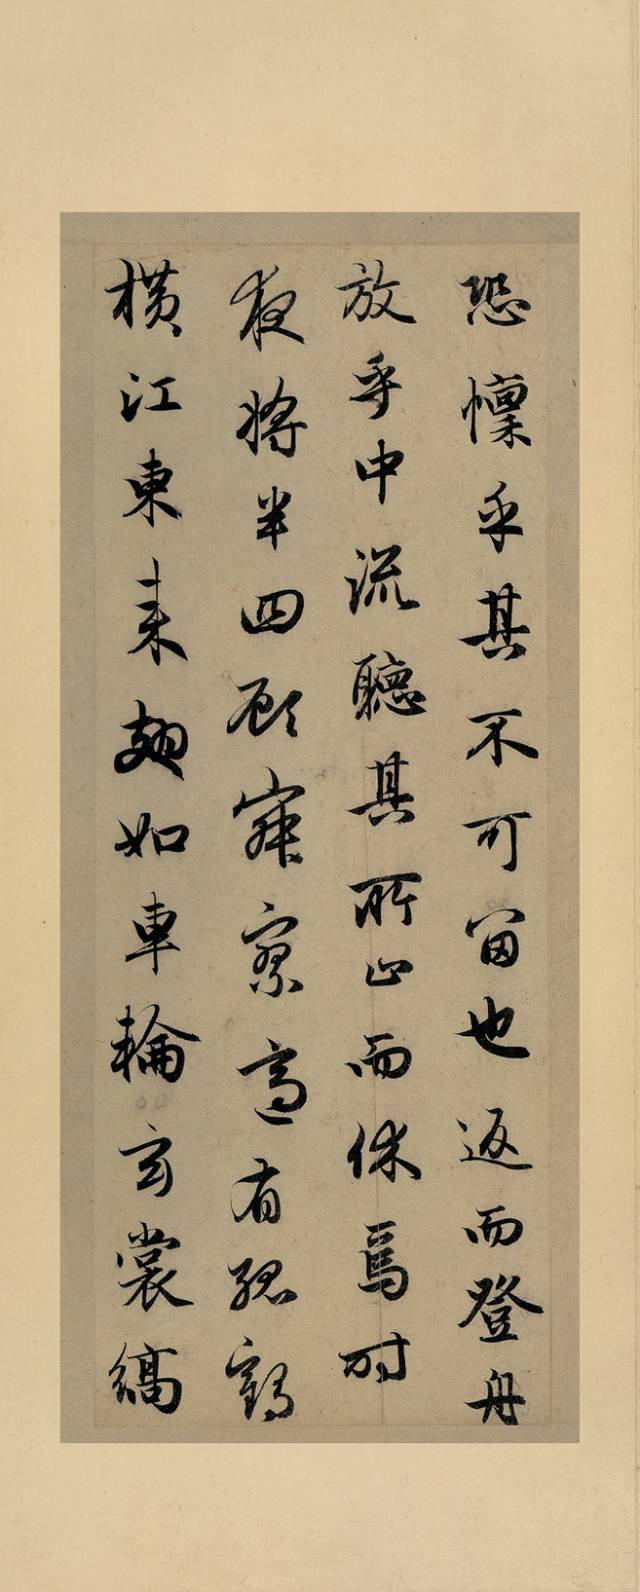 恐懍乎其不可留也返而登舟
放乎中流聽其所止而休焉时
夜將半四顾寂寥適有孤鶴
横江東来翅如車輪玄裳縞